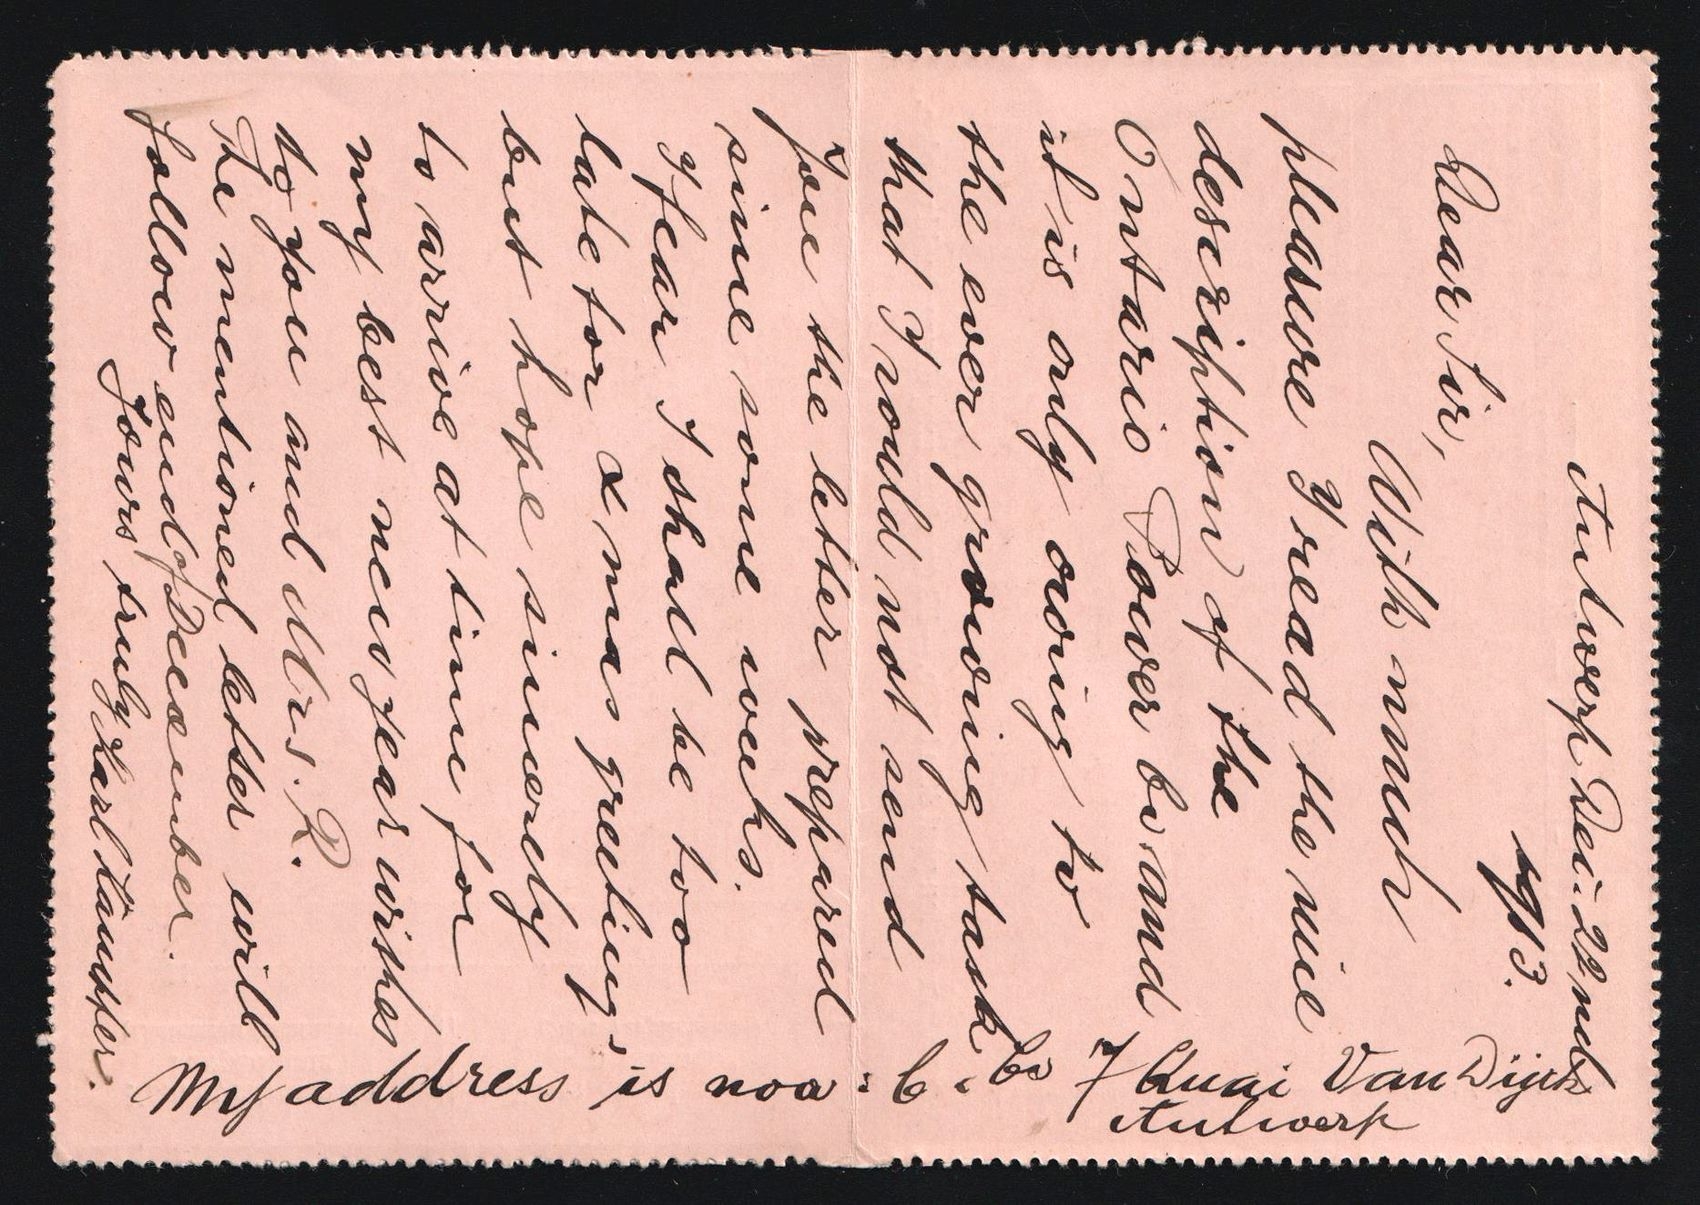 Antwerp Dec. 22nd
1913.
Dear Sir,
With much
pleasure I read the nice
descziption of the
Ontario Power Co. and
it is only owing to
the ever growing task
that I vould not send
You the letter prepared
sinne some weeks.
I fear I shall be too
late for Xmas greeting,
but hope sincerely
to arrive at time for
my best new year wishes
to you and Mrs. R.
The mentioned letter will
follow end of December.
Yours truly Karl
My address is now: C. Co 7 Quai Van Dijck
Antwerp